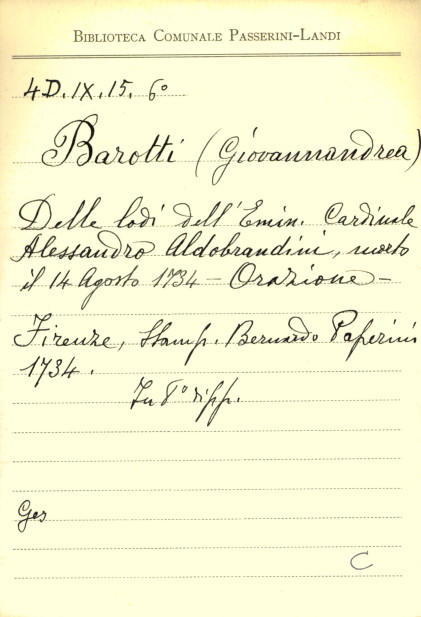 BIBLIOTECA COMUNALE PASSERINI-LANDI
4D.IX.15. 6º
Barotti (Giovannandrea)
Delle lodi dell'Emin. Cardinale
Alessandro Aldobrandini, morto
il 14 Agosto 1734 - Orazione -
Firenze, Stamp. Bernardo Paperini
1734.
In 8º di pp.
Ges
C